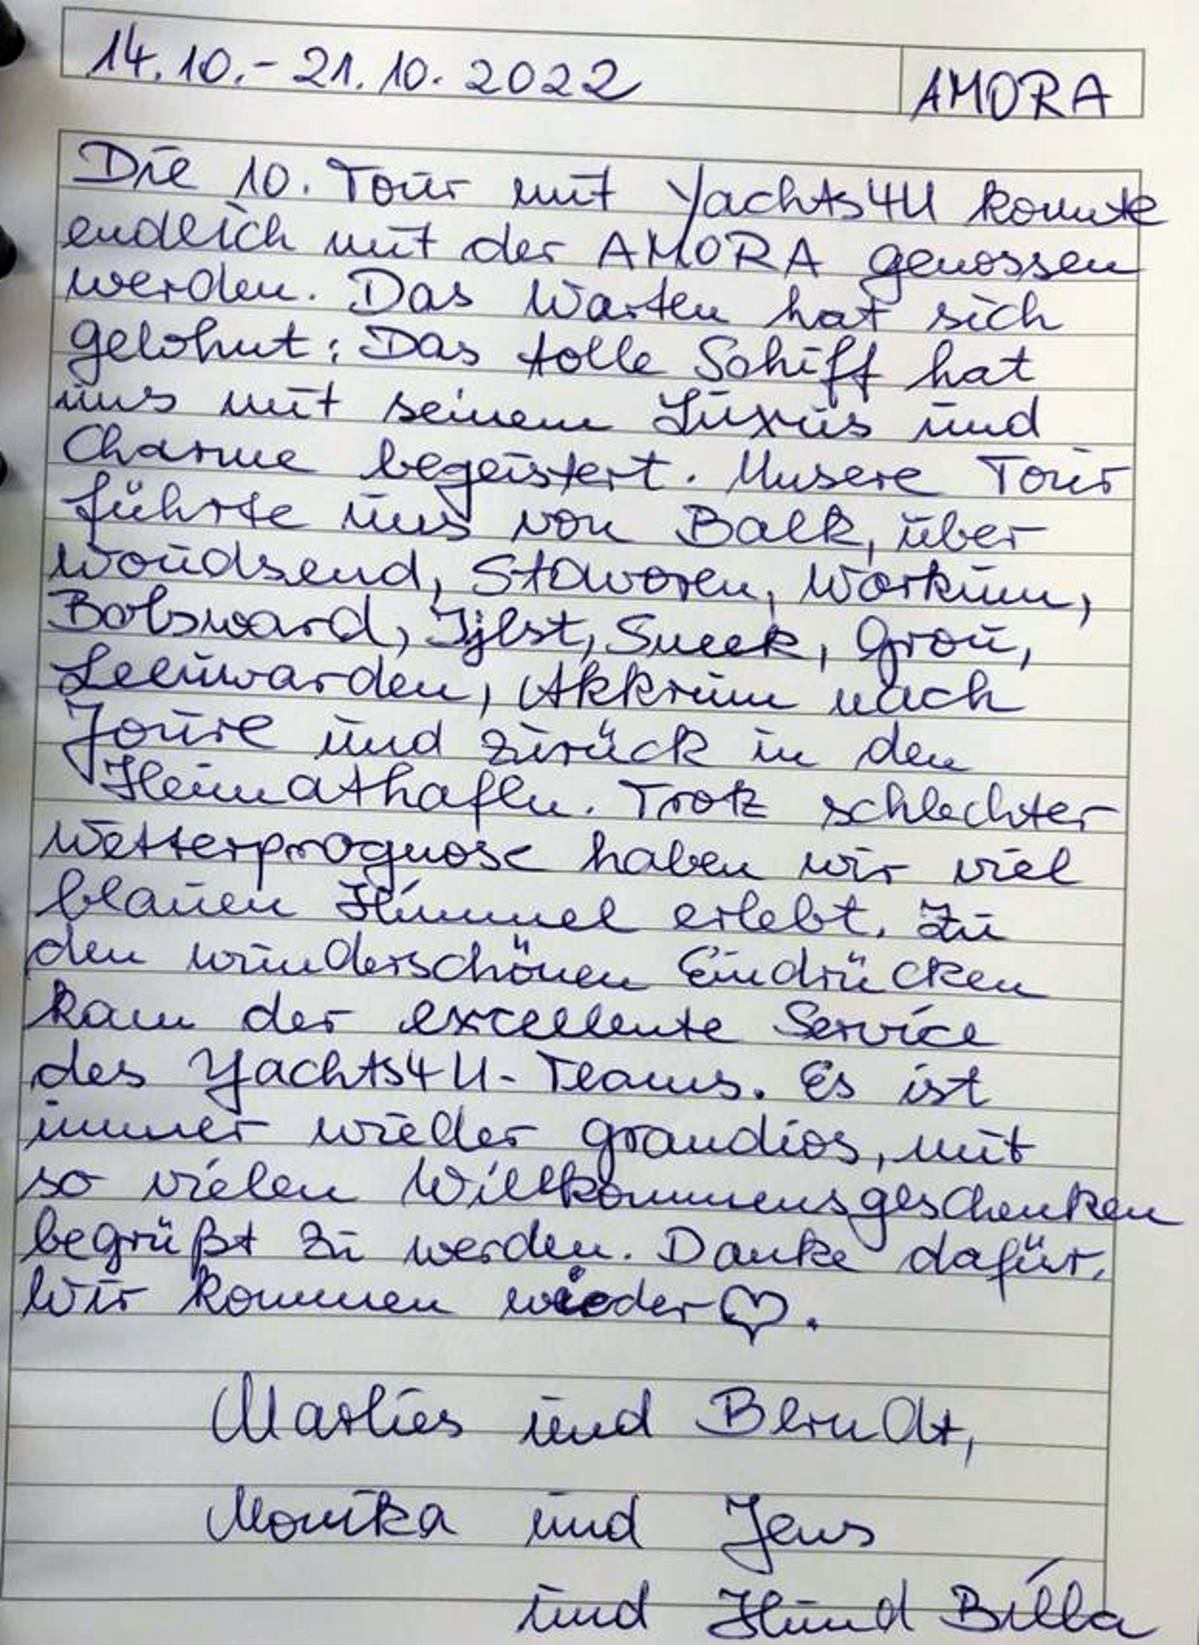 14.10.- 21.10.2022 AMORA
Die 10. Tour mit Yachts4U konnte
endlich mit der AMORA genossen
werden. Das Warten hat sich
gelohnt: Das tolle Schiff hat
uns mit seinem Luxus und
Charme begeistert. Unsere Tour
führte uns von Balk, über
Woudsend, Stavoren, Workum,
Bolsward, Ijlst, Sneek, Grou,
Leeuwarden, Akkrum nach
Joure und zurück in den
Heimathafen. Trotz schlechter
Wetterprognose haben wir viel
blauen Himmel erlebt. Zu
den wunderschönen Eindrücken
kam der excellente Service
des Yachts4U-Teams. Es ist
immer wieder grandios, mit
so vielen Willkommensgeschenken
begrüßt zu werden. Danke dafür.
Wir kommen wieder♡.
Marlies und Berndt,
Monika und Jens
und Hund Billa